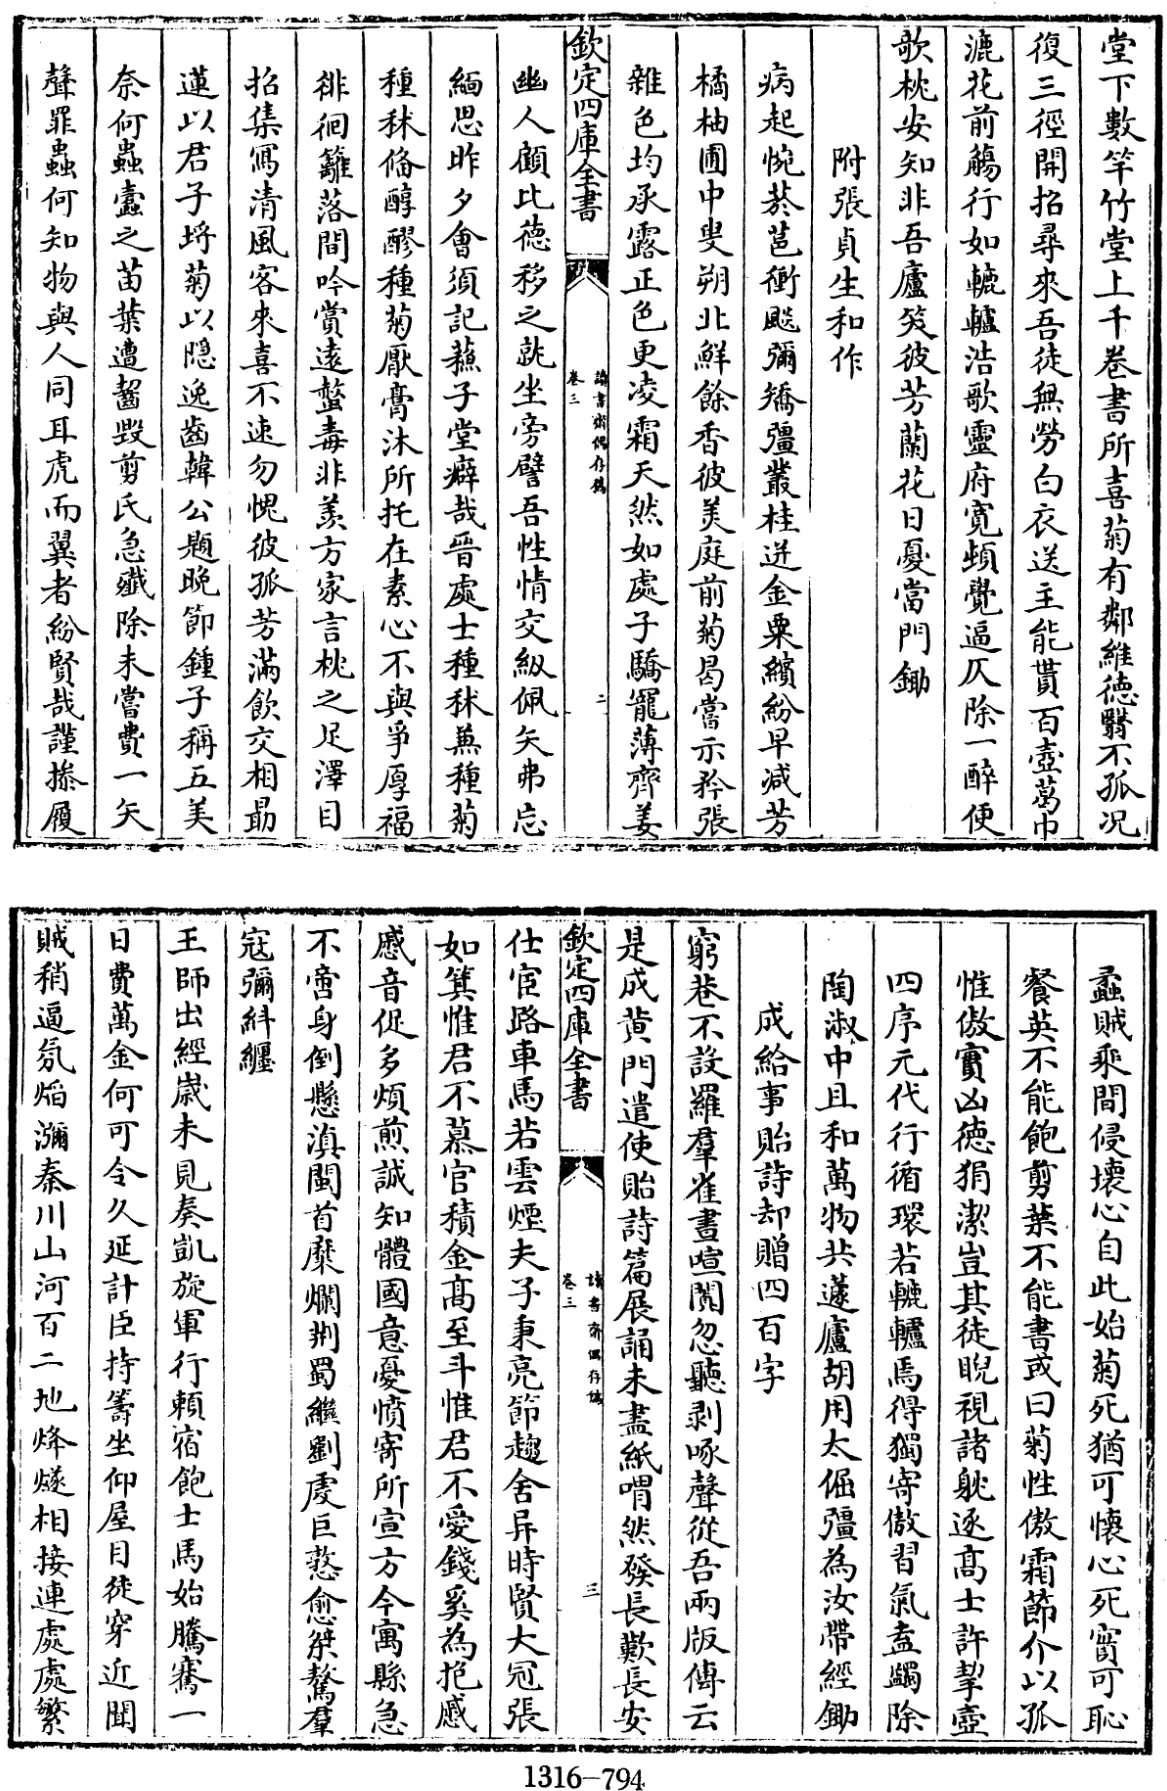 堂下數竿竹堂上千卷書所喜菊有鄰維德翳不孤况
復三徑開招尋來吾徒無勞白衣送主能貰百壺葛巾
漉花前觴行如轆轤浩歌靈府寛頓覺逼仄除一醉便
歌枕安知非吾廬笑彼芳蘭花日憂當門鋤
附張貞生和作
病起惋菸芭衝飈彌矯彊叢桂迸金粟繽紛早减芳
橘柚圃中叟朔北鮮餘香彼美庭前菊曷當示矜張
雜色均承露正色更凌霜天然如處子驕寵薄齊姜
欽定四庫全書
讀書齋偶存稿
卷三
二
幽人顧比德移之就坐旁譬吾性情交紉佩矢弗忘
緬思昨夕會須記蘓子堂癖哉晉處士種秫兼種菊
種秫俻醇醪種菊厭膏沐所托在素心不與爭厚福
徘徊籬落間吟賞遠螫毒非羡方家言枕之足澤目
招集寫清風客來喜不速勿愧彼孤芳滿飲交相勗
蓮以君子埒菊以隱逸齒韓公題晩節鍾子稱五美
奈何蟲蠹之苗葉遭齧毁剪氏急殱除未嘗費一矢
聲罪蟲何知物與人同耳虎而翼者紛賢哉謹搽履
蟊賊乘間侵壊心自此始菊死猶可懐心死實可恥
餐英不能飽剪葉不能書或曰菊性傲霜節介以孤
惟傲實凶德狷潔豈其徒睨視諸躭逐髙士許挈壺
四序元代行循環若轆轤焉得獨寄傲習氣盍蠲除
陶淑中且和萬物共蘧廬胡用太倔彊為汝帶經鋤
成給事貽詩却贈四百字
窮巷不設羅羣雀晝喧闐忽聽剥啄聲從吾兩版傳云
是成黄門遣使貽詩篇展誦未盡紙喟然發長歎長安
欽定四庫全書
讀書齋偶存稿
卷三
三
仕宦路車馬若雲煙夫子秉亮節趨舍异時賢大冠張
如箕惟君不慕官積金髙至斗惟君不愛錢奚為抱慼
慼音促多煩煎誠知體國意憂憤寄所宣方今寓縣急
不啻身倒懸滇閩首糜爛荆蜀繼劉䖍巨憝愈桀驁羣
寇彌糾纒
王師出經嵗未見奏凱旋軍行頼宿飽士馬始騰騫一
日費萬金何可令久延計臣持籌坐仰屋目徒穿近聞
賊稍逼氛焰瀰秦川山河百二地烽燧相接連處處繁
1316-794